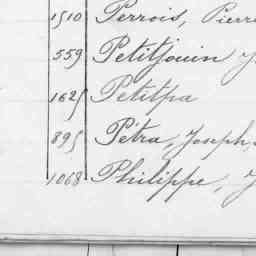 1510 Perrois, Pierre
559 Petitjouin J
1625 Petitpa
895 Pétra, Joseph,
1068 Philippe, J